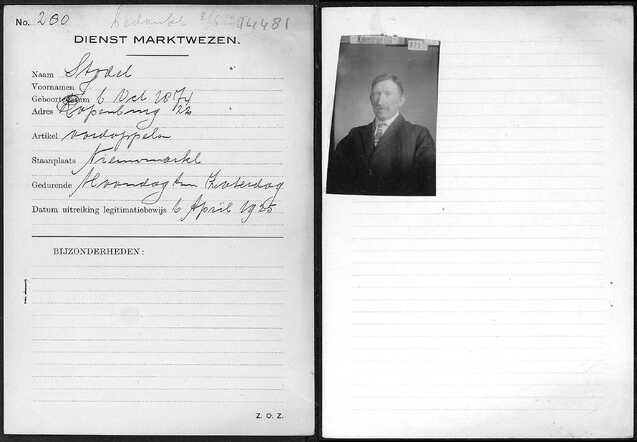 No. 200 bedankt 14481
DIENST MARKTWEZEN.
Naam Stodel
Voornamen J
Geboortedatum 6 Oct 1874
Adres Rapenburg 22
Artikel aardappelen
Staanplaats Nieuwmarkt
Gedurende Maandag t/m Zaterdag
Datum uitreiking legitimatiebewijs 6 April 1925
BIJZONDERHEDEN:
Z. O. Z.